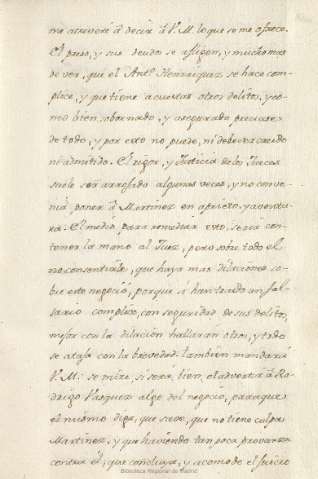 me atrevere á decir á V. M. lo que se me ofrece.
El preso, y sus deudos se afligen, y mucho mas
de ver, que el Ant.o Henrriquez se hace com-
plice, y que tiene acuestas otros delitos, y co-
mo bien, sobornado, y asegurado procurara
de todo, y por esto no puede, ni debe ser creido
ni admitido. El rigor, y Justicia de los Jueces
suele ser arrojado algunas veces, y no conve-
nia poner á Martinez en aprieto, y aventu-
ra. El medio para remediar esto, seria con-
tener la mano al Juez, pero sobre todo el
no consentirle, que haya mas dilaciones so-
bre este negocio, porque si han traido un fal-
sario complice, con seguridad de sus delitos,
mejor con la dilación hallarán otros, y todo
se ataja con la brevedad. tambien mandará
V. M. se mire, si será bien, el advertir á Ro-
drigo Vazquez algo del negocio, para que
el mismo diga, que sabe, que no tiene culpa
Martinez, y que haviendo tan poca provanza
contra él, que concluya, y acomode el juicio
Biblioteca Regional de Madrid